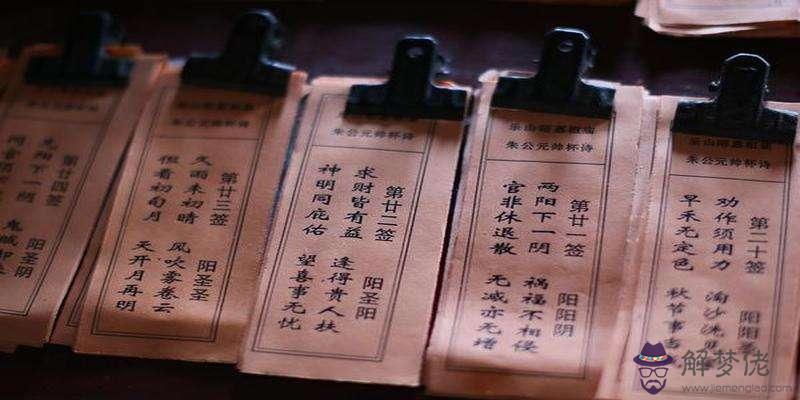 朱公元帅杯诗
第二十签 阳阳
劝作须用力 淘沙
早禾无定色 秋节事
朱公元帅杯诗
第廿一签 阳阳阴
两阳下一阴 祸福不相侵
官非休退散 无减亦无增
朱公元帅杯诗
第廿二签 阳圣阳
求财皆有益 逢得贵人扶
神明同庇佑 望喜事无忧
朱公元帅杯诗
第廿三签 阳圣圣
久雨未初晴 风吹雾卷云
但看初旬月 天开月再明
第廿四签 阳圣阴
先阳下一阴
解梦佬
www.jiemenglao.com